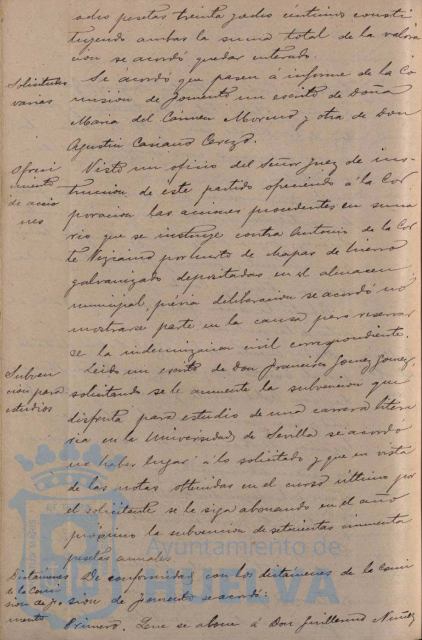 pesetas treinta y ocho céntimos consti
tuyendo ambas la suma total de la valora
ción se acordó quedar enterado.
Solicitudes
varias
Se acordó que pasen a informe de la Co
misión de Fomento un escrito de Doña
Maria del Carmen Moreno y otra de Don
Agustin Casiano Cerezo.
Ofreci
miento
de accio
nes
Visto un oficio del Señor Juez de ins
trucción de este partido ofreciendo á la Cor
poracion las acciones procedentes en suma
rio que se instruye contra Antonio de la Cor
te por hurto de chapas de hierro
galvanizado depositadas en el almacen
municipal, prévia deliberacion se acordó no
mostrarse parte en la causa pero reservar
se la indemnizacion civil correspondiente.
Subven
ción para
estudios
Leido un escrito de Don Francisco Gomez Gomez,
solicitando se le aumente la subvencion que
disfruta para estudio de una carrera litera
ria en la Universidad de Sevilla se acordó
no haber lugar á lo solicitado y que en vista
de las notas obtenidas en el curso último por
el solicitante se le siga abonando en el año
próximo la subvencion de setecientas cincuenta
pesetas anuales.
Dictámenes
de la Comi
sion de Fo
mento
De conformidad con los dictámenes de la Comi
sion de Fomento se acordó:
Primero. Que se abone á Don Guillermo Nuñez
Ayuntamiento de
HUELVA